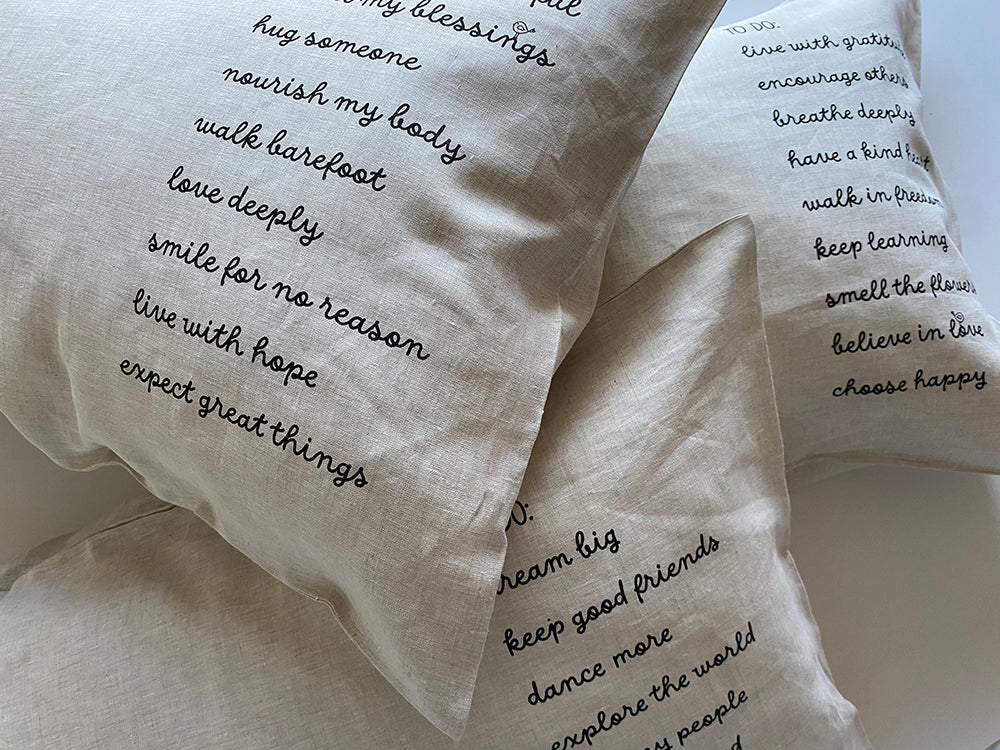 my blessings
hug someone
nourish my body
walk barefoot
love deeply
smile for no reason
live with hope
expect great things
TO DO:
live with gratitu
encourage others
breathe deeply
have a kind heart
walk in freedom
keep learning
smell the flowers
believe in love
choose happy
O:
ream big
keep good friends
dance more
explore the world
people